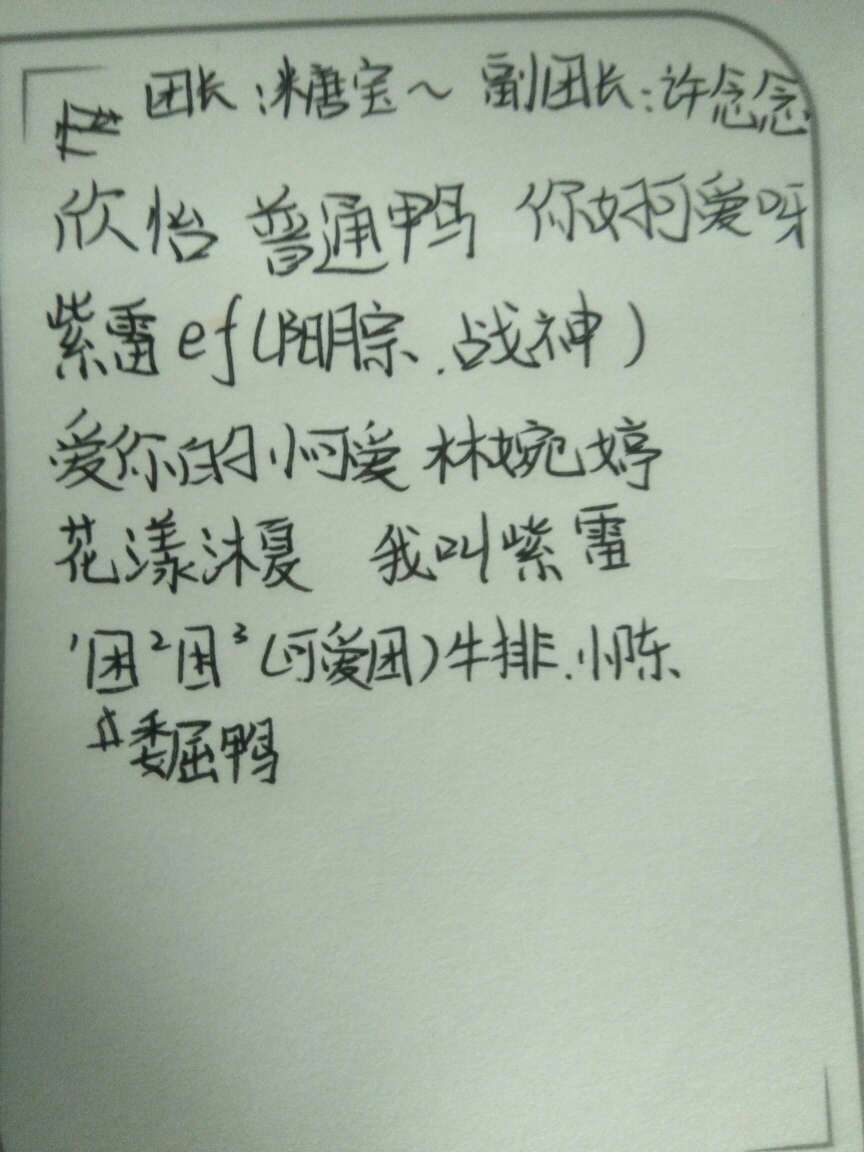 团长:糖宝~ 副团长:许念念
欣怡 普通鸭 你好可爱呀
紫雷ef(阳踪.战神)
爱你的小可爱 林婉婷
花漾沐夏 我叫紫雷
1困2困3(可爱团)牛排.小陈、
#委屈鸭